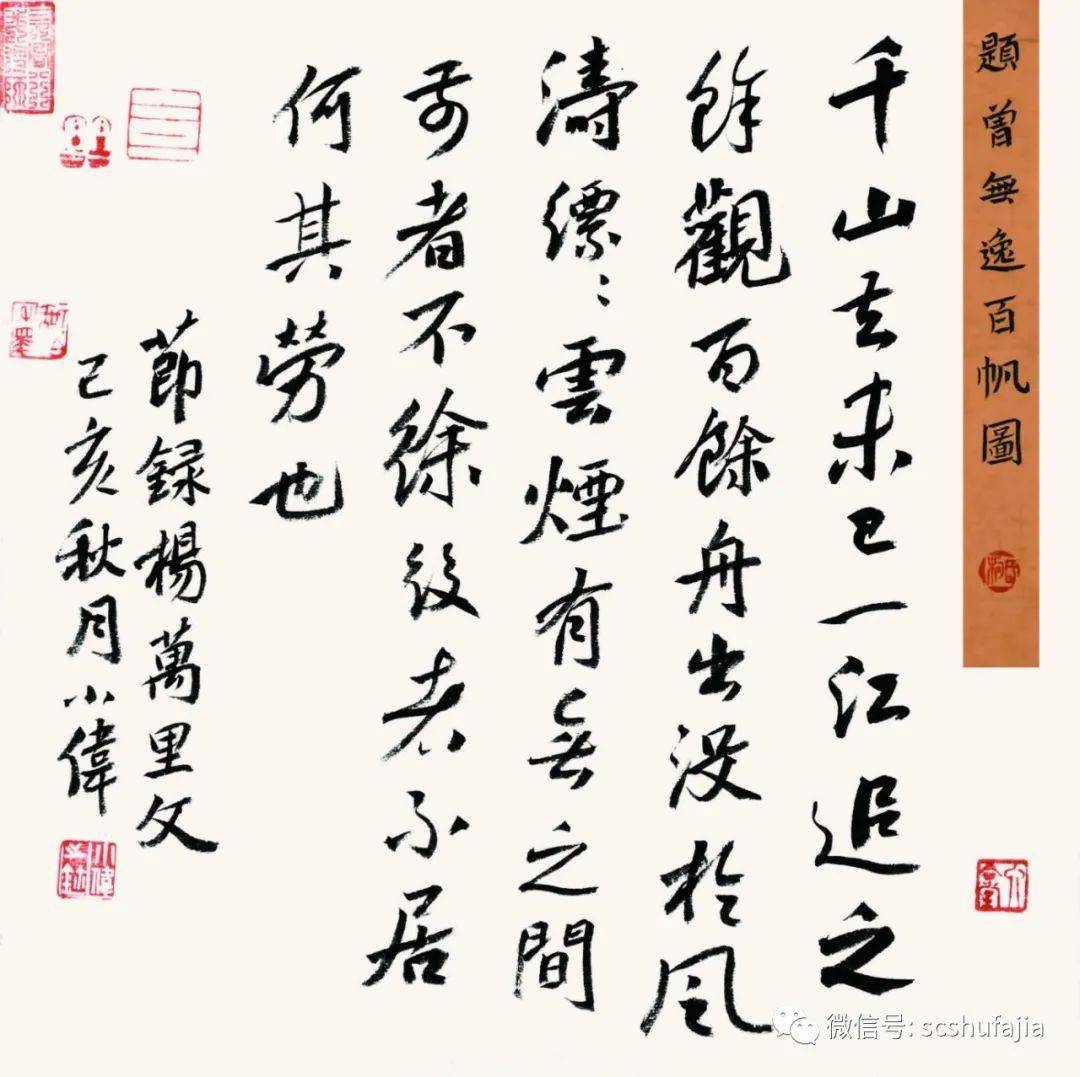 題曾無逸百帆圖
千山去未已一江追之
餘觀百餘舟出沒於風
濤縹〻雲煙有無之間
前者不徐後者不居
何其勞也
節録楊萬里文
己亥秋月小偉
微信号: scshufajia